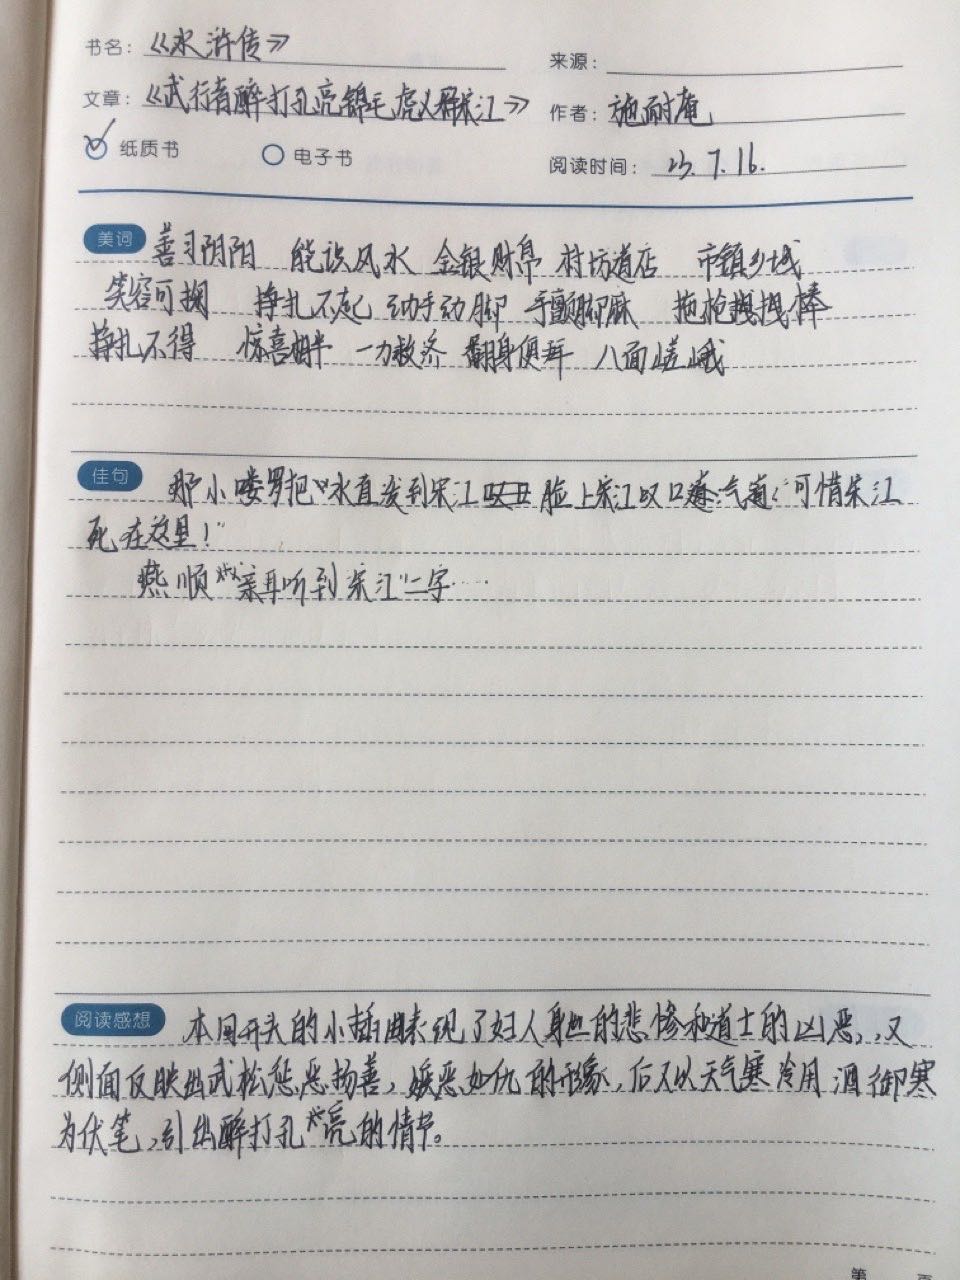 书名：《水浒传》
来源：
文章：《武行者醉打孔亮锦毛虎义释宋江》
作者：施耐庵
纸质书 电子书
阅读时间：23.7.16.
美词 善习阴阳 能识风水 金银财帛 村坊道店 市镇乡城
笑容可掬 挣扎不起 动手动脚 手颤脚麻 拖枪拽棒
挣扎不得 惊喜相半 一力救济 翻身便拜 八面嵯峨
佳句 那小喽罗把水直泼到宋江脸上宋江叹口气道：“可惜宋江
死在这里！”
燕顺亲耳听到“宋江”二字……
阅读感想 本回开头的小插曲表现了妇人身世的悲惨和道士的凶恶，又
侧面反映出武松惩恶扬善，嫉恶如仇的形象，后又以天气寒冷用酒御寒
为伏笔，引出醉打孔亮的情节。
第 页